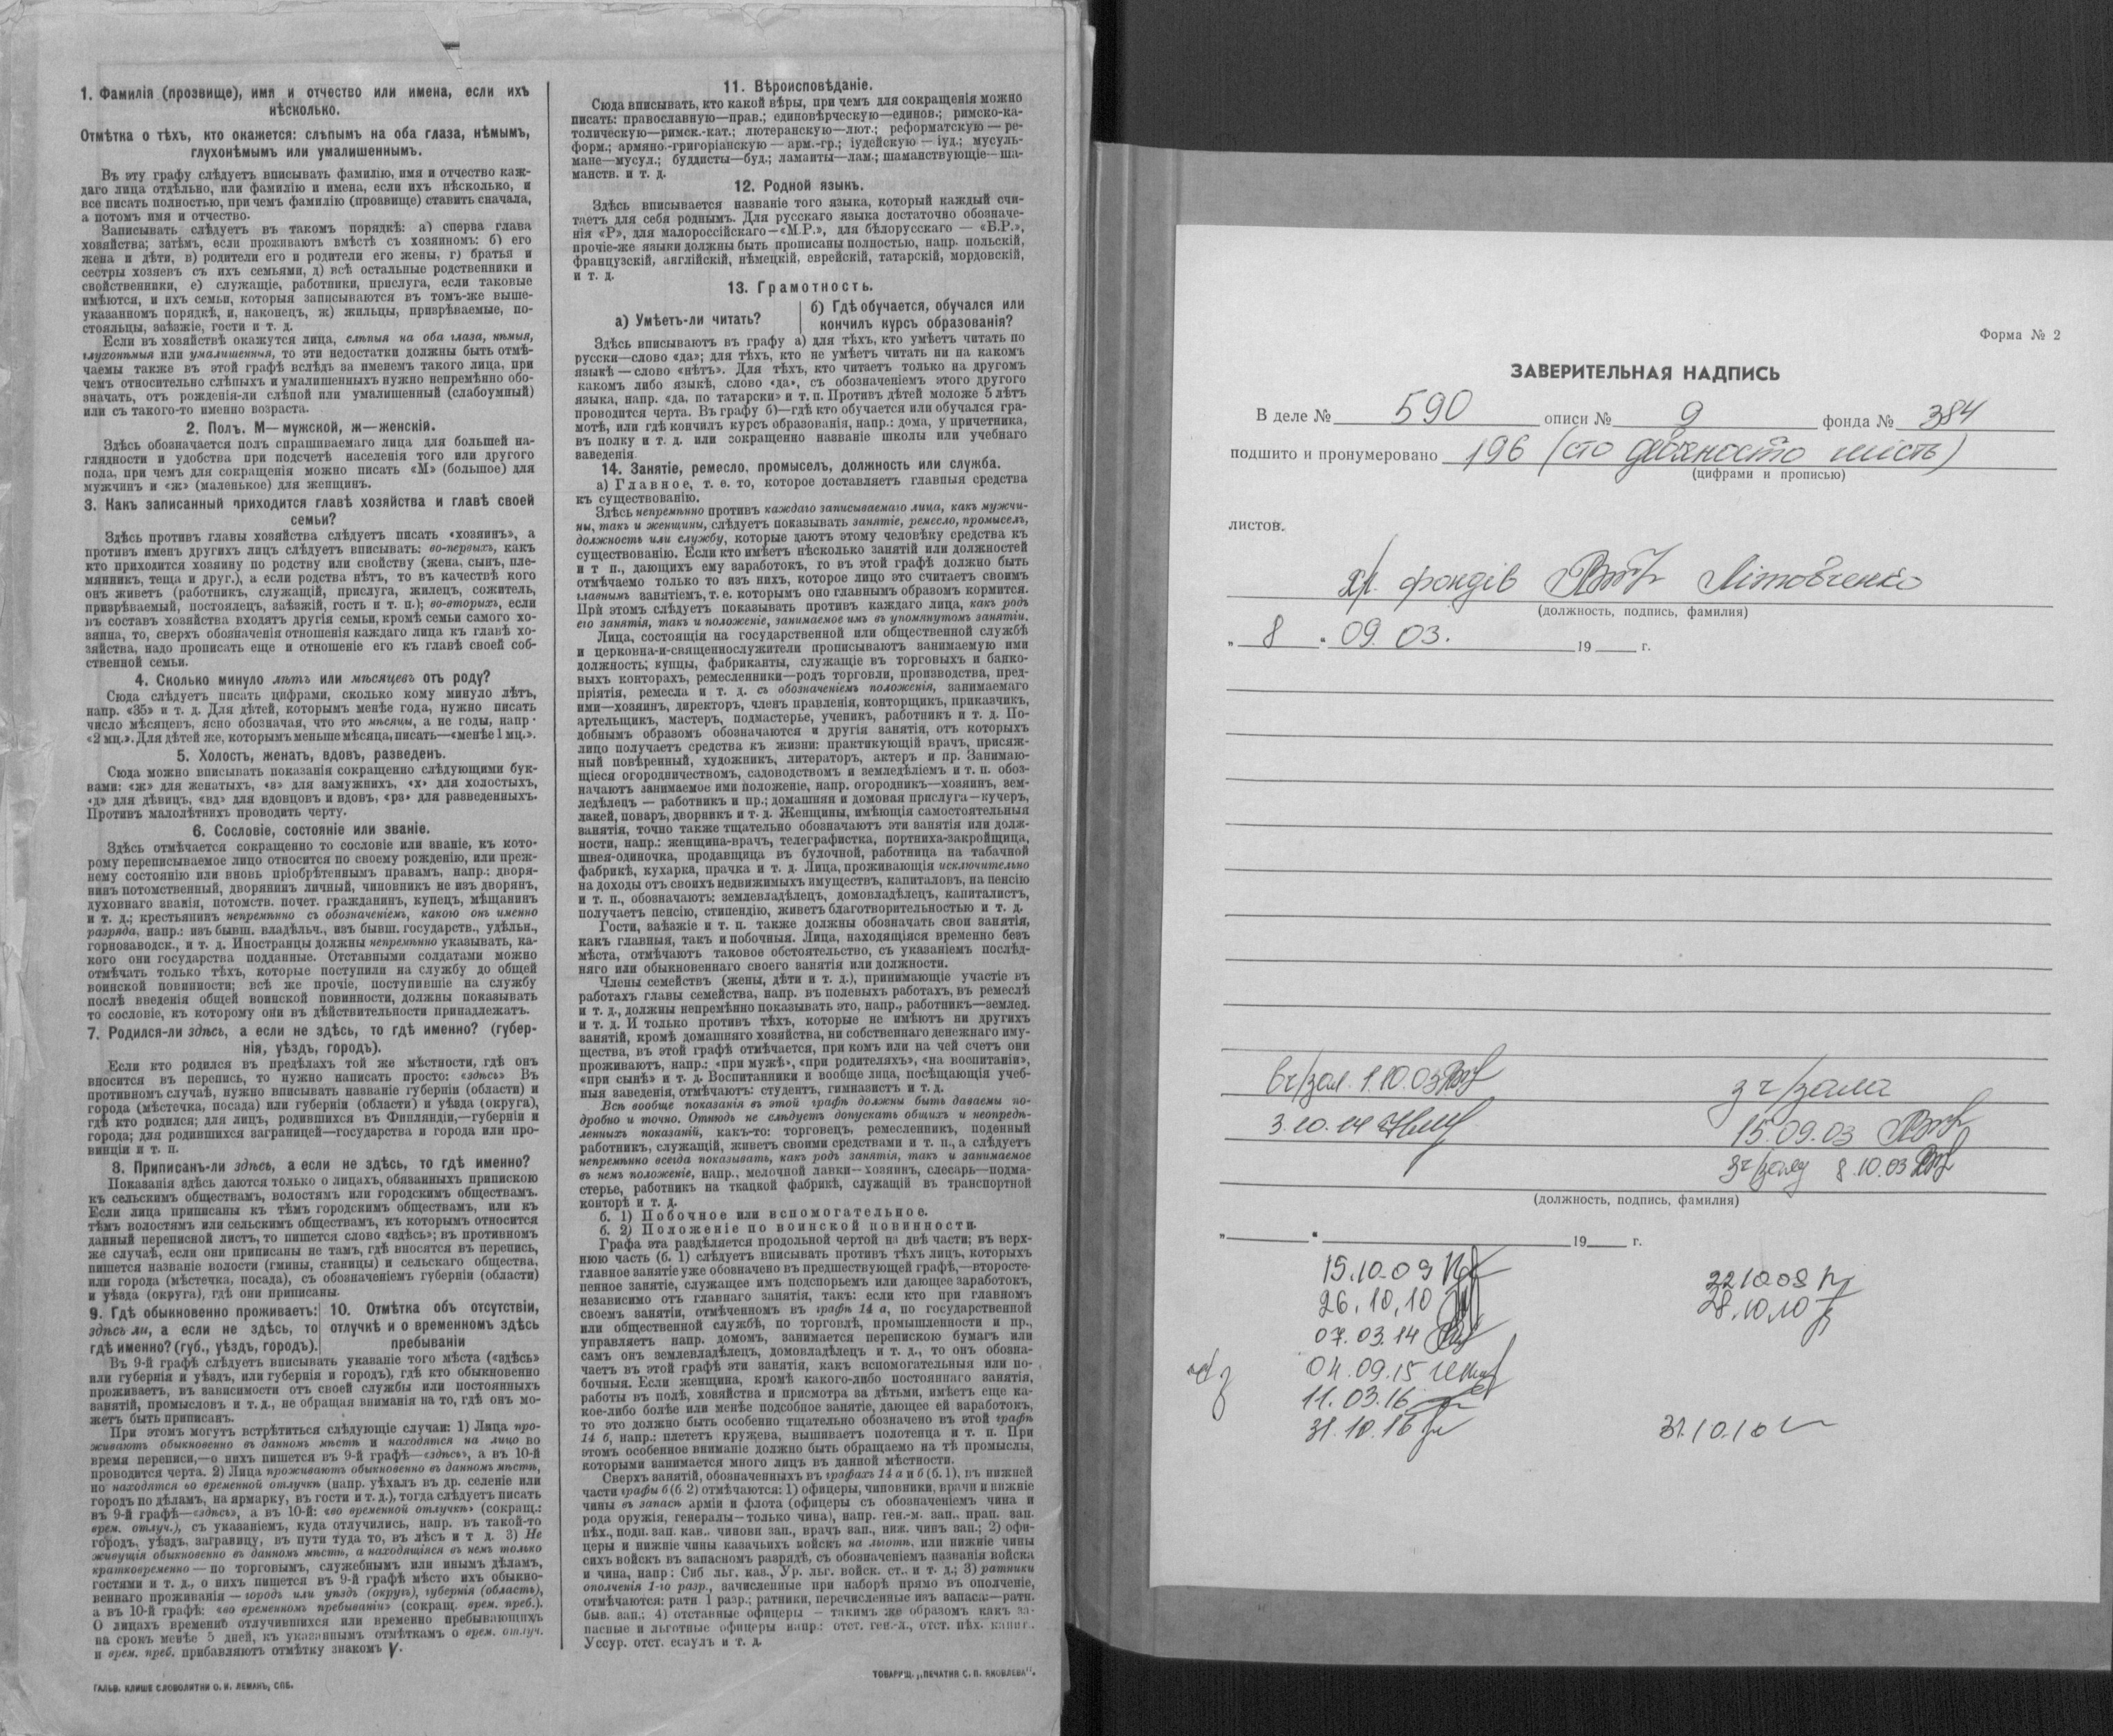 1. Фамилія (прозвище), имя и отчество или имена, если ихъ
нѣсколько.
Отмѣтка о тѣхъ, кто окажется: слѣпымъ на оба глаза, нѣмымъ,
глухонѣмымъ или умалишеннымъ.
Въ эту графу слѣдуетъ вписывать фамилію, имя и отчество каж-
даго лица отдѣльно, или фамилію и имена, если ихъ нѣсколько, и
все писать полностью, при чемъ фамилію (прозвище) ставить сначала,
а потомъ имя и отчество.
Записывать слѣдуетъ въ такомъ порядкѣ: а) сперва глава
хозяйства; затѣмъ, если проживаютъ вмѣстѣ съ хозяиномъ: б) его
жена и дѣти, в) родители его и родители его жены, г) братья и
сестры хозяевъ съ ихъ семьями, д) всѣ остальные родственники и
свойственники, е) служащіе, работники, прислуга, если таковые
имѣются, и ихъ семьи, которыя записываются въ томъ-же выше-
указанномъ порядкѣ, и, наконецъ, ж) жильцы, призрѣваемые, по-
стояльцы, заѣзжіе, гости и т. д.
Если въ хозяйствѣ окажутся лица, слѣпыя на оба глаза, нѣмыя,
глухонѣмыя или умалишенныя, то эти недостатки должны быть отмѣ-
чаемы также въ этой графѣ вслѣдъ за именемъ такого лица, при
чемъ относительно слѣпыхъ и умалишенныхъ нужно непремѣнно обо-
значать, отъ рожденія-ли слѣпой или умалишенный (слабоумный)
или съ такого-то именно возраста.
2. Полъ. М—мужской, ж—женскій.
Здѣсь обозначается полъ спрашиваемаго лица для большей на-
глядности и удобства при подсчетѣ населенія того или другого
пола, при чемъ для сокращенія можно писать «М» (большое) для
мужчинъ и «ж» (маленькое) для женщинъ.
3. Какъ записанный приходится главѣ хозяйства и главѣ своей
семьи?
Здѣсь противъ главы хозяйства слѣдуетъ писать «хозяинъ», а
противъ именъ другихъ лицъ слѣдуетъ вписывать: во-первыхъ, какъ
кто приходится хозяину по родству или свойству (жена, сынъ, пле-
мянникъ, теща и друг.), а если родства нѣтъ, то въ качествѣ кого
онъ живетъ (работникъ, служащій, прислуга, жилецъ, сожитель,
призрѣваемый, постоялецъ, заѣзжій, гость и т. п.); во-вторыхъ, если
въ составъ хозяйства входятъ другія семьи, кромѣ семьи самого хо-
зяина, то, сверхъ обозначенія отношенія каждаго лица къ главѣ хо-
зяйства, надо прописать еще и отношеніе его къ главѣ своей соб-
ственной семьи.
4. Сколько минуло лѣтъ или мѣсяцевъ отъ роду?
Сюда слѣдуетъ писать цифрами, сколько кому минуло лѣтъ,
напр. «35» и т. д. Для дѣтей, которымъ менѣе года, нужно писать
число мѣсяцевъ, ясно обозначая, что это мѣсяцы, а не годы, напр.
«2 мц.». Для дѣтей же, которымъ меньше мѣсяца, писать—«менѣе 1 мц.».
5. Холостъ, женатъ, вдовъ, разведенъ.
Сюда можно вписывать показанія сокращенно слѣдующими бук-
вами: «ж» для женатыхъ, «з» для замужнихъ, «х» для холостыхъ,
«д» для дѣвицъ, «вд» для вдовцовъ и вдовъ, «рз» для разведенныхъ.
Противъ малолѣтнихъ проводить черту.
6. Сословіе, состояніе или званіе.
Здѣсь отмѣчается сокращенно то сословіе или званіе, къ кото-
рому переписываемое лицо относится по своему рожденію, или преж-
нему состоянію или вновь пріобрѣтеннымъ правамъ, напр.: дворя-
нинъ потомственный, дворянинъ личный, чиновникъ не изъ дворянъ,
духовнаго званія, потомств. почет. гражданинъ, купецъ, мѣщанинъ
и т. д.; крестьянинъ непремѣнно съ обозначеніемъ, какого онъ именно
разряда, напр.: изъ бывш. владѣльч., изъ бывш. государств., удѣльн.,
горнозаводск., и т. д. Иностранцы должны непремѣнно указывать, ка-
кого они государства подданные. Отставными солдатами можно
отмѣчать только тѣхъ, которые поступили на службу до общей
воинской повинности; всѣ же прочіе, поступившіе на службу
послѣ введенія общей воинской повинности, должны показывать
то сословіе, къ которому они въ дѣйствительности принадлежатъ.
7. Родился-ли здѣсь, а если не здѣсь, то гдѣ именно? (губер-
нія, уѣздъ, городъ).
Если кто родился въ предѣлахъ той же мѣстности, гдѣ онъ
вносится въ перепись, то нужно написать просто: «здѣсь» Въ
противномъ случаѣ, нужно вписывать названіе губерніи (области) и
города (мѣстечка, посада) или губерніи (области) и уѣзда (округа),
гдѣ кто родился; для лицъ, родившихся въ Финляндіи,—губерніи и
города; для родившихся заграницей—государства и города или про-
винціи и т. п.
8. Приписанъ-ли здѣсь, а если не здѣсь, то гдѣ именно?
Показанія здѣсь даются только о лицахъ, обязанныхъ припискою
къ сельскимъ обществамъ, волостямъ или городскимъ обществамъ.
Если лица приписаны къ тѣмъ городскимъ обществамъ, или къ
тѣмъ волостямъ или сельскимъ обществамъ, къ которымъ относится
данный переписной листъ, то пишется слово «здѣсь»; въ противномъ
же случаѣ, если они приписаны не тамъ, гдѣ вносятся въ перепись,
пишется названіе волости (гмины, станицы) и сельскаго общества,
или города (мѣстечка, посада), съ обозначеніемъ губерніи (области)
и уѣзда (округа), гдѣ они приписаны.
9. Гдѣ обыкновенно проживаетъ:
здѣсь ли, а если не здѣсь, то
гдѣ именно? (губ., уѣздъ, городъ).
10. Отмѣтка объ отсутствіи,
отлучкѣ и о временномъ здѣсь
пребываніи
Въ 9-й графѣ слѣдуетъ вписывать указаніе того мѣста («здѣсь»
или губернія и уѣздъ, или губернія и городъ), гдѣ кто обыкновенно
проживаетъ, въ зависимости отъ своей службы или постоянныхъ
занятій, промысловъ и т. д., не обращая вниманія на то, гдѣ онъ мо-
жетъ быть приписанъ.
При этомъ могутъ встрѣтиться слѣдующіе случаи: 1) Лица про-
живаютъ обыкновенно въ данномъ мѣстѣ и находятся на лицо во
время переписи,—о нихъ пишется въ 9-й графѣ—«здѣсь», а въ 10-й
проводится черта. 2) Лица проживаютъ обыкновенно въ данномъ мѣстѣ,
но находятся во временной отлучкѣ (напр. уѣхалъ въ др. селеніе или
городъ по дѣламъ, на ярмарку, въ гости и т. д.), тогда слѣдуетъ писать
въ 9-й графѣ—«здѣсь», а въ 10-й: «во временной отлучкѣ» (сокращ.:
врем. отлуч.), съ указаніемъ, куда отлучились, напр. въ такой-то
городъ, уѣздъ, заграницу, въ пути туда то, въ лѣсъ и т д. 3) Не
живущія обыкновенно въ данномъ мѣстѣ, а находящіяся въ немъ только
кратковременно — по торговымъ, служебнымъ или инымъ дѣламъ,
гостями и т. д., о нихъ пишется въ 9-й графѣ мѣсто ихъ обыкно-
веннаго проживанія — городъ или уѣздъ (округъ), губернія (область),
а въ 10-й графѣ: «во временномъ пребываніи» (сокращ. врем. преб.).
О лицахъ временно отлучившихся или временно пребывающихъ
на срокъ менѣе 5 дней, къ указаннымъ отмѣткамъ о врем. отлуч.
и врем. преб. прибавляютъ отмѣтку знакомъ V.
ГАЛЬВ. КЛИШЕ СЛОВОЛИТНИ О. И. ЛЕМАНЪ, СПБ.
11. Вѣроисповѣданіе.
Сюда вписывать, кто какой вѣры, при чемъ для сокращенія можно
писать: православную—прав.; единовѣрческую—единов.; римско-ка-
толическую—римск.-кат.; лютеранскую—лют.; реформатскую — ре-
форм.; армяно-григоріанскую — арм.-гр.; іудейскую — іуд.; мусуль-
мане—мусул.; буддисты—буд.; ламаиты—лам.; шаманствующіе—ша-
манств. и т. д.
12. Родной языкъ.
Здѣсь вписывается названіе того языка, который каждый счи-
таетъ для себя роднымъ. Для русскаго языка достаточно обозначе-
нія «Р», для малороссійскаго—«М.Р.», для бѣлорусскаго — «Б.Р.»,
прочіе-же языки должны быть прописаны полностью, напр. польскій,
французскій, англійскій, нѣмецкій, еврейскій, татарскій, мордовскій,
и т. д.
13. Грамотность.
а) Умѣетъ-ли читать?
б) Гдѣ обучается, обучался или
кончилъ курсъ образованія?
Здѣсь вписываютъ въ графу а) для тѣхъ, кто умѣетъ читать по
русски—слово «да»; для тѣхъ, кто не умѣетъ читать ни на какомъ
языкѣ — слово «нѣтъ». Для тѣхъ, кто читаетъ только на другомъ
какомъ либо языкѣ, слово «да», съ обозначеніемъ этого другого
языка, напр. «да, по татарски» и т. п. Противъ дѣтей моложе 5 лѣтъ
проводится черта. Въ графу б)—гдѣ кто обучается или обучался гра-
мотѣ, или гдѣ кончилъ курсъ образованія, напр.: дома, у причетника,
въ полку и т. д. или сокращенно названіе школы или учебнаго
заведенія.
14. Занятіе, ремесло, промыселъ, должность или служба.
а) Главное, т. е. то, которое доставляетъ главныя средства
къ существованію.
Здѣсь непремѣнно противъ каждаго записываемаго лица, какъ мужчи-
ны, такъ и женщины, слѣдуетъ показывать занятіе, ремесло, промыселъ,
должность или службу, которые даютъ этому человѣку средства къ
существованію. Если кто имѣетъ нѣсколько занятій или должностей
и т п., дающихъ ему заработокъ, то въ этой графѣ должно быть
отмѣчаемо только то изъ нихъ, которое лицо это считаетъ своимъ
главнымъ занятіемъ, т. е. которымъ оно главнымъ образомъ кормится.
При этомъ слѣдуетъ показывать противъ каждаго лица, какъ родъ
его занятія, такъ и положеніе, занимаемое имъ въ упомянутомъ занятіи.
Лица, состоящія на государственной или общественной службѣ
и церковно-и-священнослужители прописываютъ занимаемую ими
должность; купцы, фабриканты, служащіе въ торговыхъ и банко-
выхъ конторахъ, ремесленники—родъ торговли, производства, пред-
пріятія, ремесла и т. д. съ обозначеніемъ положенія, занимаемаго
ими—хозяинъ, директоръ, членъ правленія, конторщикъ, приказчикъ,
артельщикъ, мастеръ, подмастерье, ученикъ, работникъ и т. д. По-
добнымъ образомъ обозначаются и другія занятія, отъ которыхъ
лицо получаетъ средства къ жизни: практикующій врачъ, присяж-
ный повѣренный, художникъ, литераторъ, актеръ и пр. Занимаю-
щіеся огородничествомъ, садоводствомъ и земледѣліемъ и т. п. обоз-
начаютъ занимаемое ими положеніе, напр. огородникъ—хозяинъ, зем-
ледѣлецъ — работникъ и пр.; домашняя и домовая прислуга—кучеръ,
лакей, поваръ, дворникъ и т. д. Женщины, имѣющія самостоятельныя
занятія, точно также тщательно обозначаютъ эти занятія или долж-
ности, напр.: женщина-врачъ, телеграфистка, портниха-закройщица,
швея-одиночка, продавщица въ булочной, работница на табачной
фабрикѣ, кухарка, прачка и т. д. Лица, проживающія исключительно
на доходы отъ своихъ недвижимыхъ имуществъ, капиталовъ, на пенсію
и т. п., обозначаютъ: землевладѣлецъ, домовладѣлецъ, капиталистъ,
получаетъ пенсію, стипендію, живетъ благотворительностью и т. д.
Гости, заѣзжіе и т. п. также должны обозначать свои занятія,
какъ главныя, такъ и побочныя. Лица, находящіяся временно безъ
мѣста, отмѣчаютъ таковое обстоятельство, съ указаніемъ послѣд-
няго или обыкновеннаго своего занятія или должности.
Члены семействъ (жены, дѣти и т. д.), принимающіе участіе въ
работахъ главы семейства, напр. въ полевыхъ работахъ, въ ремеслѣ
и т. д., должны непремѣнно показывать это, напр., работникъ—землед.
и т. д. И только противъ тѣхъ, которые не имѣютъ ни другихъ
занятій, кромѣ домашняго хозяйства, ни собственнаго денежнаго иму-
щества, въ этой графѣ отмѣчается, при комъ или на чей счетъ они
проживаютъ, напр.: «при мужѣ», «при родителяхъ», «на воспитаніи»,
«при сынѣ» и т. д. Воспитанники и вообще лица, посѣщающія учеб-
ныя заведенія, отмѣчаютъ: студентъ, гимназистъ и т. д.
Всѣ вообще показанія въ этой графѣ должны быть даваемы по-
дробно и точно. Отнюдь не слѣдуетъ допускать общихъ и неопредѣ-
ленныхъ показаній, какъ-то: торговецъ, ремесленникъ, поденный
работникъ, служащій, живетъ своими средствами и т. п., а слѣдуетъ
непремѣнно всегда показывать, какъ родъ занятія, такъ и занимаемое
въ немъ положеніе, напр., мелочной лавки—хозяинъ, слесарь—подма-
стерье, работникъ на ткацкой фабрикѣ, служащій въ транспортной
конторѣ и т. д.
б. 1) Побочное или вспомогательное.
б. 2) Положеніе по воинской повинности.
Графа эта раздѣляется продольной чертой на двѣ части; въ верх-
нюю часть (б. 1) слѣдуетъ вписывать противъ тѣхъ лицъ, которыхъ
главное занятіе уже обозначено въ предшествующей графѣ,—второсте-
пенное занятіе, служащее имъ подспорьемъ или дающее заработокъ,
независимо отъ главнаго занятія, такъ: если кто при главномъ
своемъ занятіи, отмѣченномъ въ графѣ 14 а, по государственной
или общественной службѣ, по торговлѣ, промышленности и пр.,
управляетъ напр. домомъ, занимается перепискою бумагъ или
самъ онъ землевладѣлецъ, домовладѣлецъ и т. д., то онъ обозна-
чаетъ въ этой графѣ эти занятія, какъ вспомогательныя или по-
бочныя. Если женщина, кромѣ какого-либо постояннаго занятія,
работы въ полѣ, хозяйства и присмотра за дѣтьми, имѣетъ еще ка-
кое-либо болѣе или менѣе подсобное занятіе, дающее ей заработокъ,
то это должно быть особенно тщательно обозначено въ этой графѣ
14 б, напр.: плететъ кружева, вышиваетъ полотенца и т. п. При
этомъ особенное вниманіе должно быть обращаемо на тѣ промыслы,
которыми занимается много лицъ въ данной мѣстности.
Сверхъ занятій, обозначенныхъ въ графахъ 14 а и б (б. 1), въ нижней
части графы б (б. 2) отмѣчаются: 1) офицеры, чиновники, врачи и нижніе
чины въ запасѣ арміи и флота (офицеры съ обозначеніемъ чина и
рода оружія, генералы—только чина), напр. ген.-м. зап., прап. зап.
пѣх., подп. зап. кав., чиновн зап., врачъ зап., ниж. чинъ зап.; 2) офи-
церы и нижніе чины казачьихъ войскъ на льготѣ, или нижніе чины
сихъ войскъ въ запасномъ разрядѣ, съ обозначеніемъ названія войска
и чина, напр: Сиб льг. каз., Ур. льг. войск. ст.. и т. д.; 3) ратники
ополченія 1-го разр., зачисленные при наборѣ прямо въ ополченіе,
отмѣчаются: ратн. 1 разр.; ратники, перечисленные изъ запаса:—ратн.
быв. зап.; 4) отставные офицеры — такимъ же образомъ какъ за-
пасные и льготные офицеры напр.: отст. ген.-л., отст. пѣх. капит.,
Уссур. отст. есаулъ и т. д.
ТОВАРИЩ. „ПЕЧАТНЯ С. П. ЯКОВЛЕВА".
Форма № 2
ЗАВЕРИТЕЛЬНАЯ НАДПИСЬ
В деле № 590 описи № 9 фонда № 384
подшито и пронумеровано 196 (сто дев'яносто шість)
(цифрами и прописью)
листов.
хр. фондів Літовченко
(должность, подпись, фамилия)
„ 8 " 09. 03. 19 г.
вч/зал. 1.10.03
з ч/зала
3.10.14
15.09.03
зч/залу 8.10.03
(должность, подпись, фамилия)
„ " 19 г.
15.10.09
22.10.09
26.10.10
28.10.10
07.03.14
04.09.15
11.03.16
31.10.16
31.10.16